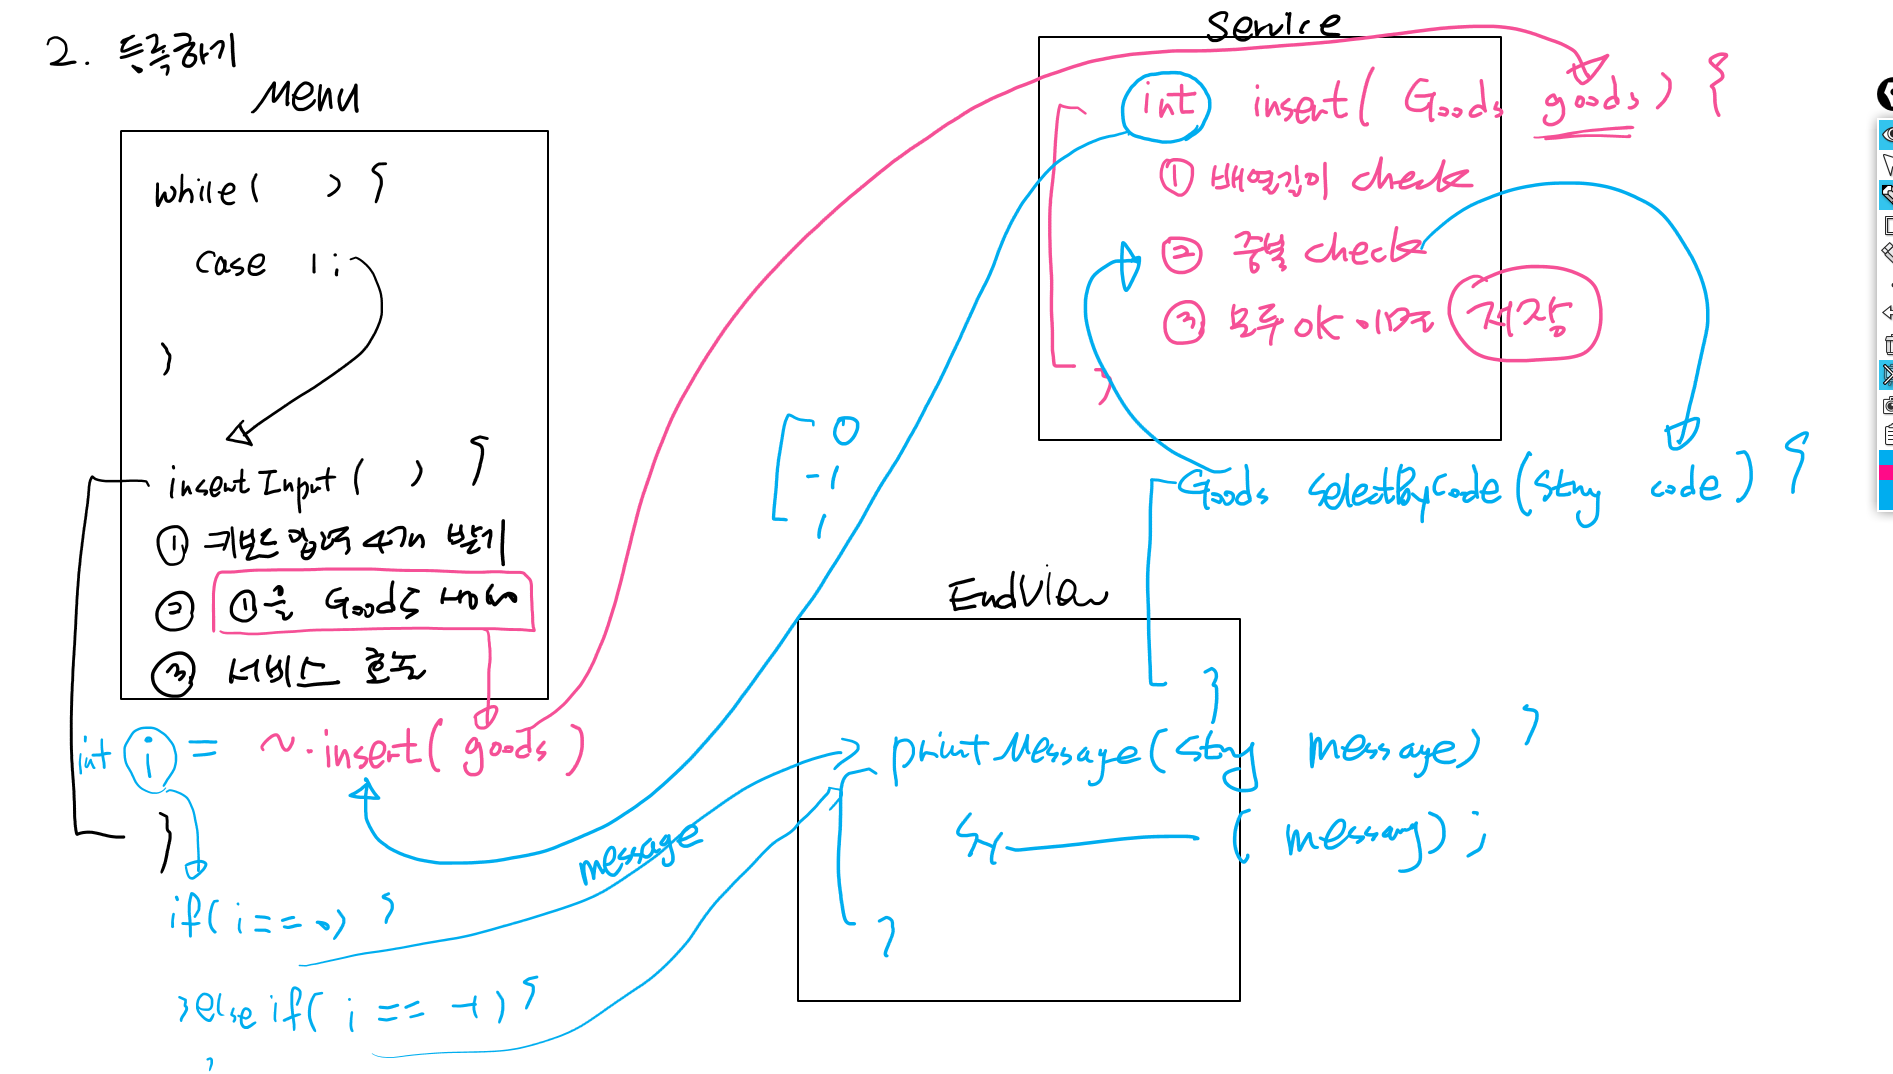 2. 등록하기
Menu
while( ) {
case 1:
}
insertInput( ) {
① 키보드 입력 4개 받기
② ①을 Goods
③ 서비스 호출
int i = ~.insert( goods )
}
if( i == 0) {
}else if( i == -1) {
}
Service
int insert( Goods goods ) {
① 배열길이 check
② 중복 check
③ 모두 OK 이면 저장
}
0
-1
1
Goods selectByCode(String code) {
}
EndView
printMessage(String message) {
(message);
}
message